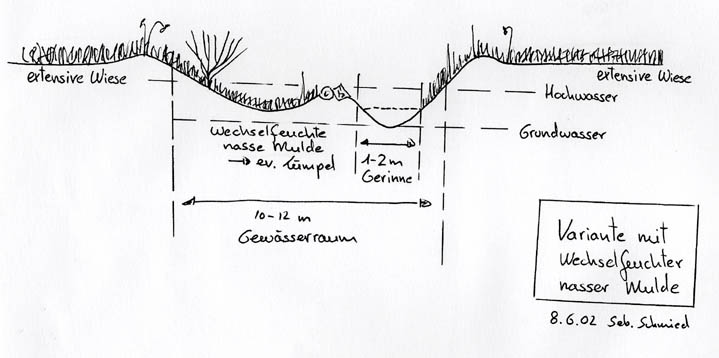 extensive Wiese
extensive Wiese
Hochwasser
Grundwasser
Wechselfeuchte
nasse Mulde
→ ev. Tümpel
1-2 m
Gerinne
10-12 m
Gewässerraum
Variante mit
Wechselfeuchter
nasser Mulde
8.6.02 Seb. Schmied